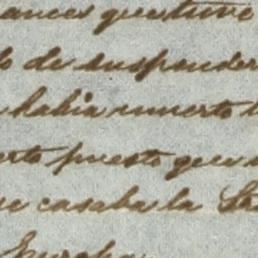 ances que tuve
o de suspender
habia muerto
erto puesto que
ue casaba la
Europa